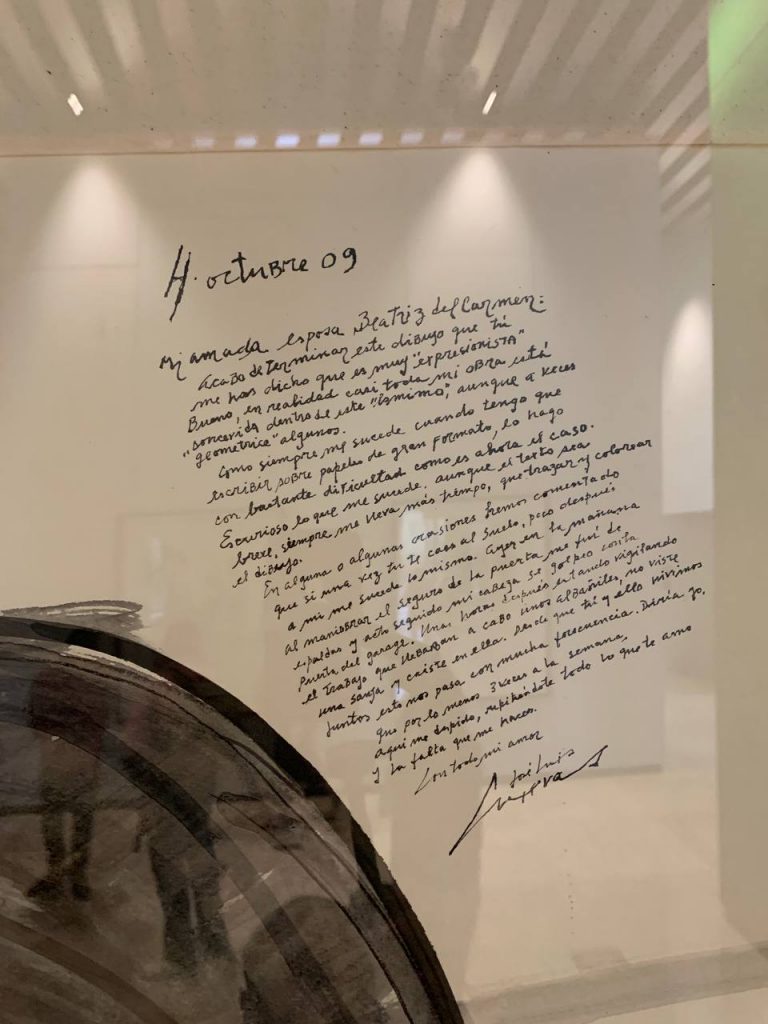 4. octubre 09
Mi amada esposa Beatriz del Carmen:
Acabo de terminar este dibujo que tú
me has dicho que es muy "expresionista"
Bueno, en realidad casi toda mi obra está
dentro de este "ismimo", aunque a veces
"geometrice" algunos.
Como siempre me sucede cuando tengo que
escribir sobre papeles de gran formato, lo hago
con bastante dificultad como es ahora el caso.
Es curioso lo que me sucede. Aunque el texto sea
breve, siempre me lleva más tiempo, que trazar y colorear
el dibujo.
En alguna o algunas ocasiones hemos comentado
que si una vez tu te caes al suelo, poco después
a mi me sucede lo mismo. Ayer en la mañana
al maniobrar el seguro de la puerta me fui de
espaldas y acto seguido mi cabeza se golpeo contra
puerta del garage. Unas horas después estando vigilando
el trabajo que llevaban a cabo unos albañiles, no viste
una sanja y caiste en ella. Desde que tú y yo vivimos
juntos esto nos pasa con mucha frecuencia. Diría yo,
que por lo menos 3 veces a la semana,
aqui me despido, repitiéndote todo lo que te amo
y la falta que me haces.
Con todo mi amor
José Luis
Cuevas